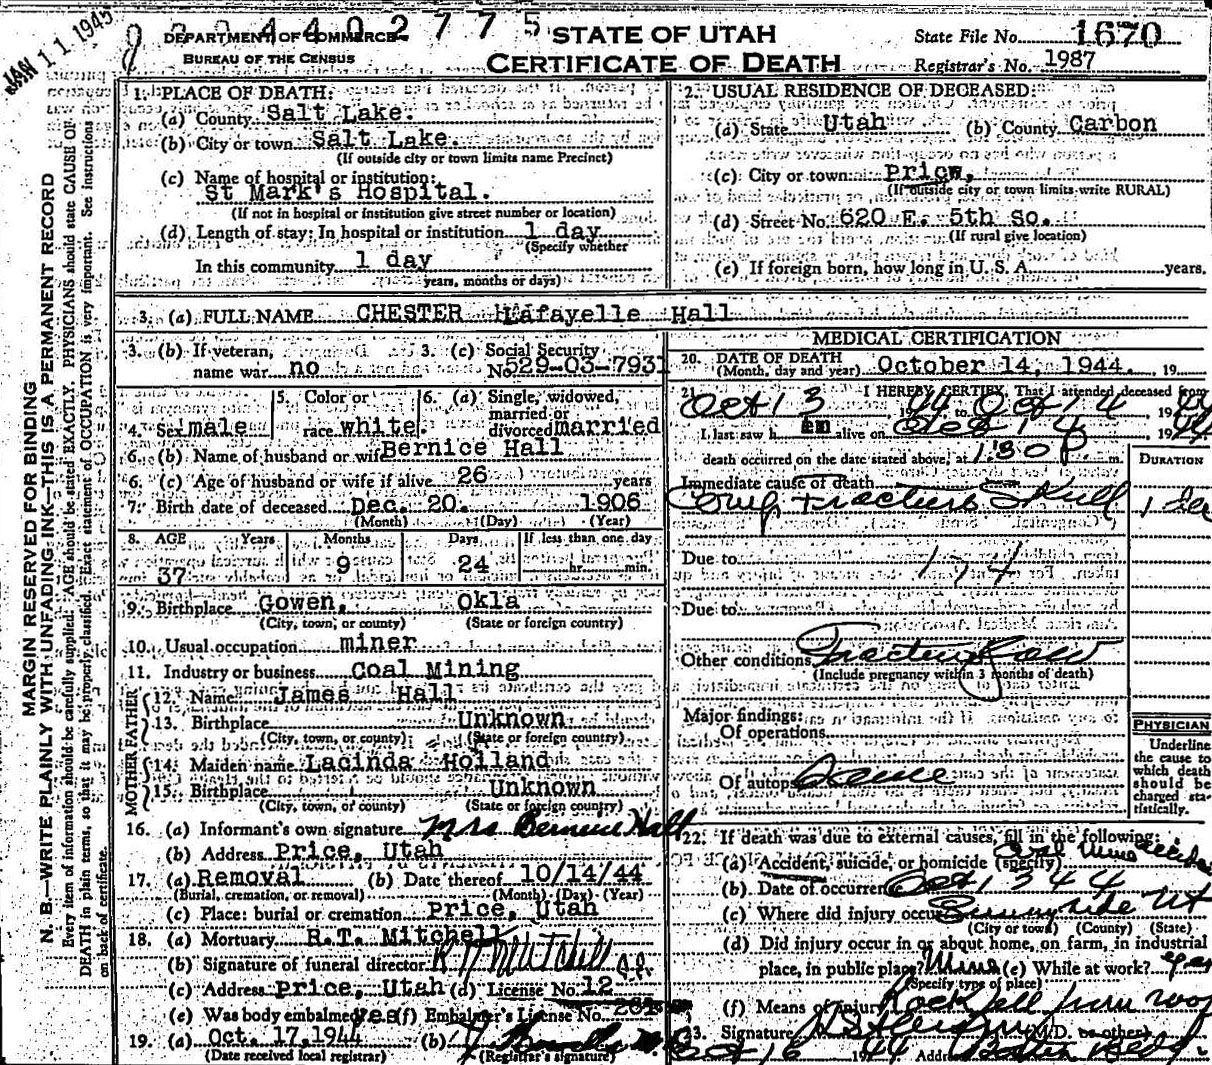 JAN 11 1945
DEPARTMENT OF COMMERCE
BUREAU OF THE CENSUS
4 4 0 2 7 7 5
STATE OF UTAH
CERTIFICATE OF DEATH
State File No. 1670
Registrar's No. 1987
MARGIN RESERVED FOR BINDING
N. B.—WRITE PLAINLY WITH UNFADING INK—THIS IS A PERMANENT RECORD
Every item of information should be carefully supplied. AGE should be stated EXACTLY. PHYSICIANS should state CAUSE OF
DEATH in plain terms, so that it may be properly classified. Exact statement of OCCUPATION is very important. See instructions
on back of certificate.
1. PLACE OF DEATH:
(a) County Salt Lake.
(b) City or town Salt Lake.
(If outside city or town limits name Precinct)
(c) Name of hospital or institution:
St Mark's Hospital.
(If not in hospital or institution give street number or location)
(d) Length of stay: In hospital or institution 1 day
(Specify whether
In this community 1 day
years, months or days)
2. USUAL RESIDENCE OF DECEASED:
(a) State Utah (b) County Carbon
(c) City or town Price,
(If outside city or town limits write RURAL)
(d) Street No. 620 E. 5th So.
(If rural give location)
(e) If foreign born, how long in U. S. A. years.
3. (a) FULL NAME CHESTER Lafayelle Hall
3. (b) If veteran,
name war no
3. (c) Social Security
No. 529-03-7931
4. Sex male
5. Color or
race white.
6. (a) Single, widowed,
married or
divorced married
6. (b) Name of husband or wife Bernice Hall
6. (c) Age of husband or wife if alive 26 years
7. Birth date of deceased Dec. 20. 1906
(Month) (Day) (Year)
8. AGE Years Months Days If less than one day
37 9 24 hr. min.
9. Birthplace Gowen, Okla
(City, town, or county) (State or foreign country)
10. Usual occupation miner
11. Industry or business Coal Mining
FATHER
12. Name James Hall
13. Birthplace Unknown
(City, town, or county) (State or foreign country)
MOTHER
14. Maiden name Lacinda Holland
15. Birthplace Unknown
(City, town, or county) (State or foreign country)
16. (a) Informant's own signature Mrs Bernice Hall
(b) Address Price, Utah
17. (a) Removal (b) Date thereof 10/14/44
(Burial, cremation, or removal) (Month) (Day) (Year)
(c) Place: burial or cremation Price, Utah
18. (a) Mortuary R.T. Mitchell
(b) Signature of funeral director R T Mitchell
(c) Address Price, Utah (d) License No. 12
(e) Was body embalmed yes (f) Embalmer's License No.
19. (a) Oct. 17, 1944 (b)
(Date received local registrar) (Registrar's signature)
MEDICAL CERTIFICATION
20. DATE OF DEATH
(Month, day and year) October 14, 1944. 19
21. I HEREBY CERTIFY, That I attended deceased from
Oct 13 1944 to Oct 14 1944
I last saw h im alive on Oct 14 1944
death occurred on the date stated above, at 1:30 P. m.
DURATION
Immediate cause of death
Comp. Fracture Skull 1 day
Due to
Due to
Other conditions Fracture Jaw
(Include pregnancy within 3 months of death)
Major findings:
Of operations
Of autopsy
PHYSICIAN
Underline
the cause to
which death
should be
charged sta-
tistically.
22. If death was due to external causes, fill in the following:
(a) Accident, suicide, or homicide (specify) Coal Mine accident
(b) Date of occurrence Oct 13 44
(c) Where did injury occur Sunnyside Ut
(City or town) (County) (State)
(d) Did injury occur in or about home, on farm, in industrial
place, in public place? Mine (e) While at work? yes
(Specify type of place)
(f) Means of injury Rock fell from roof
23. Signature (M.D. or other)
Oct 16 1944 Addr Boston Bldg.